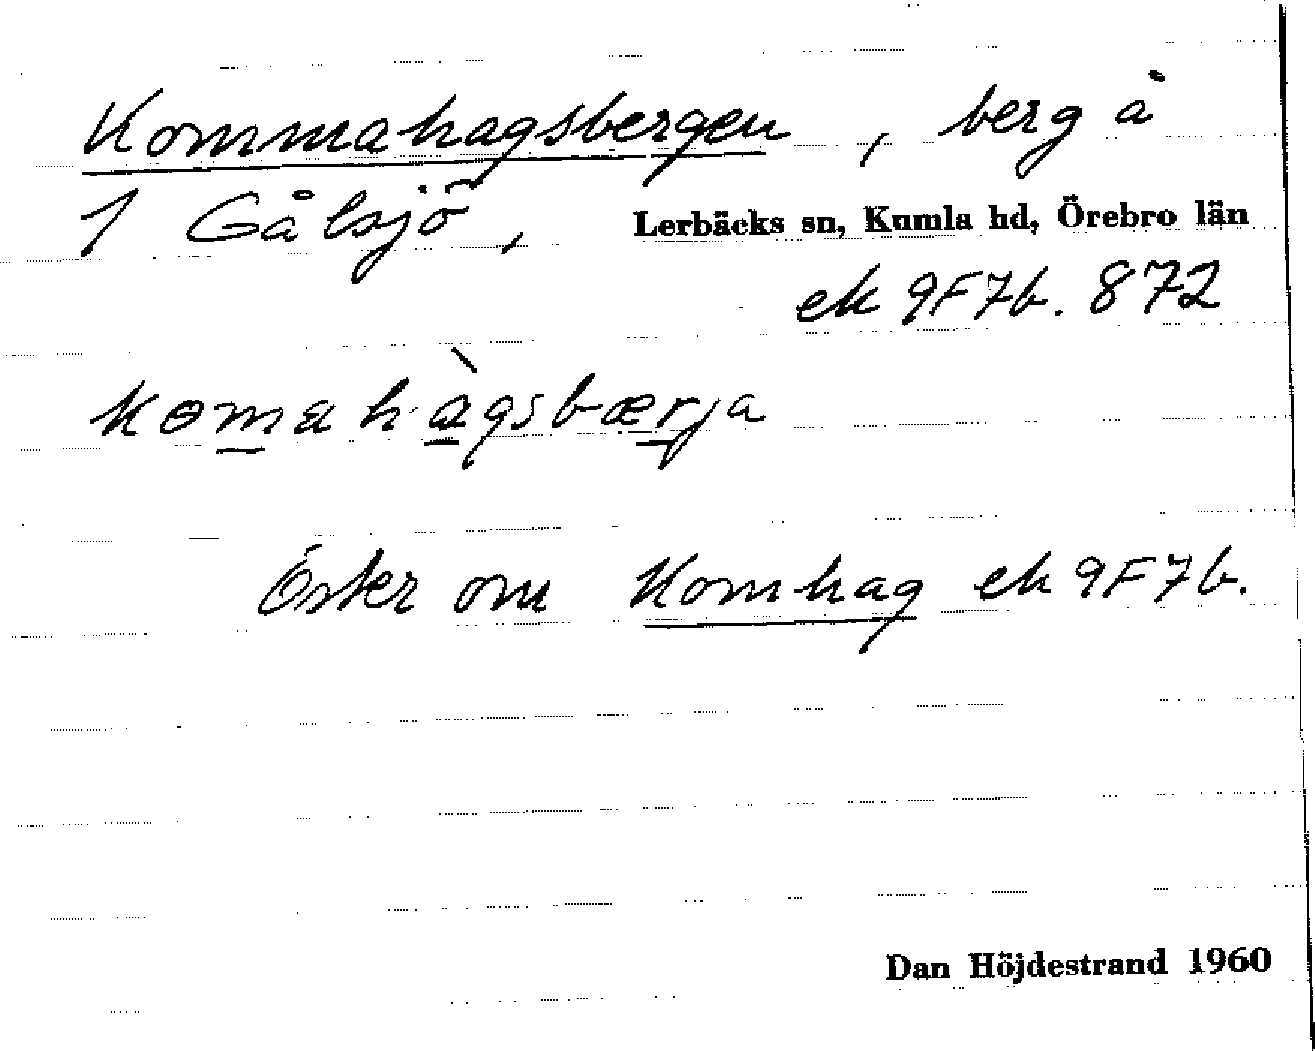 Kommahagsbergen, berg å
1 Gålsjö, Lerbäcks sn, Kumla hd, Örebro län
ek 9F7b. 872
kɵmahàgsbærja
Öster om Komhag ek 9F7b.
Dan Höjdestrand 1960